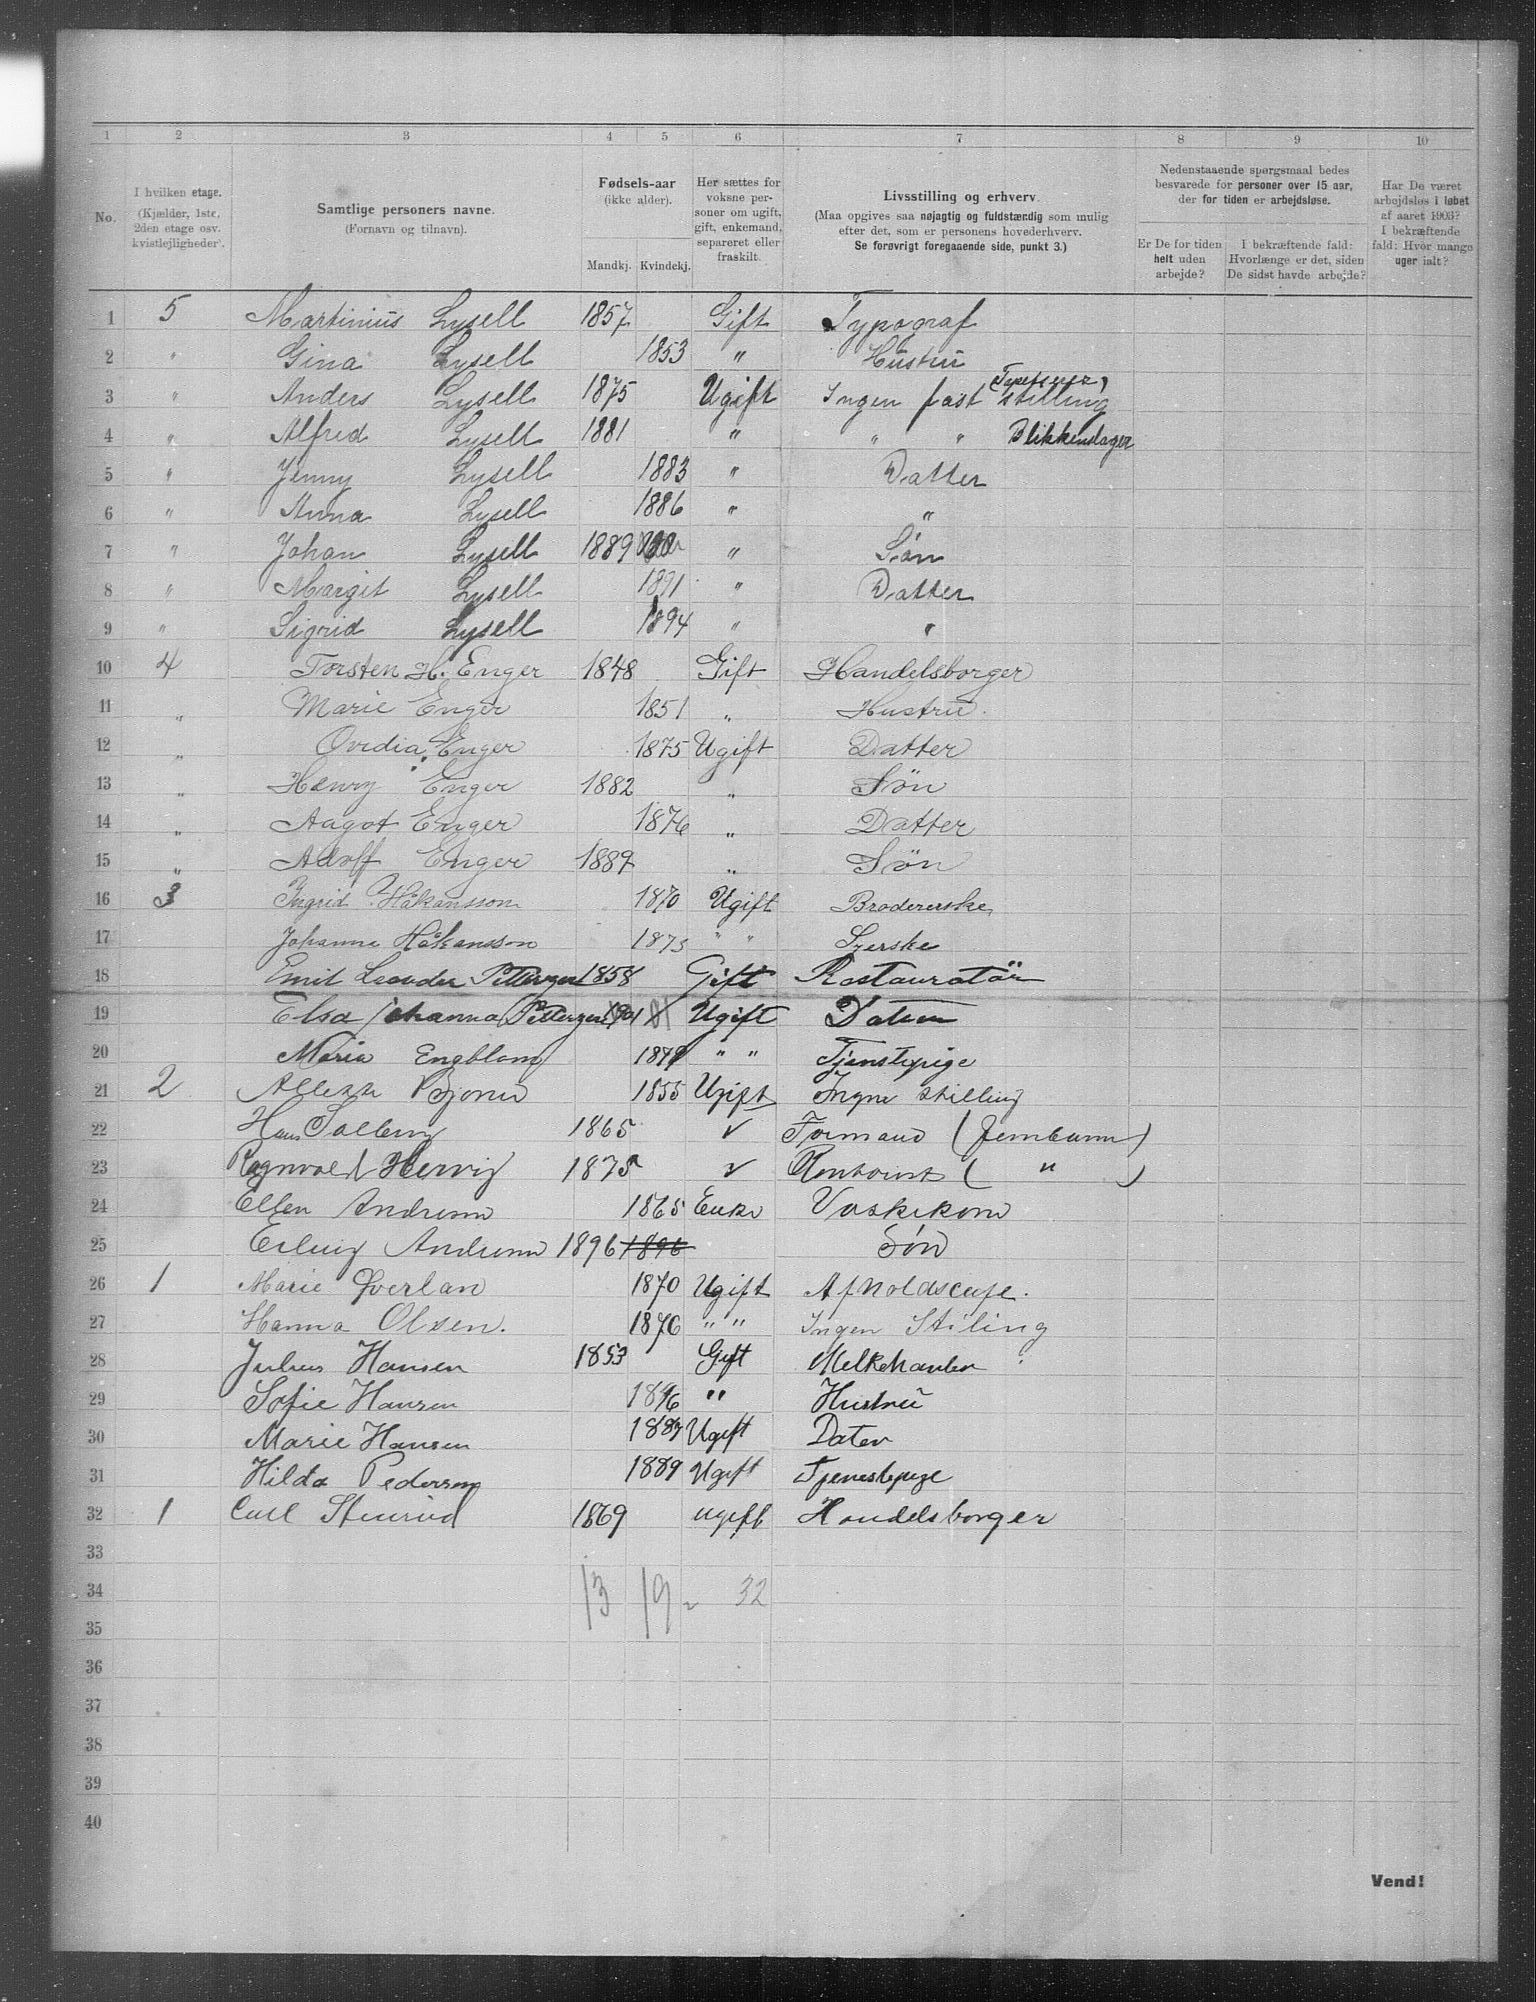 1 2 3 4 5 6 7 8 9 10
No. I hvilken etage. (Kjælder, 1ste, 2den etage osv. kvistlejligheder). Samtlige personers navne. (Fornavn og tilnavn). Fødsels-aar (ikke alder). Mandkj. Kvindekj. Her sættes for voksne personer om ugift, gift, enkemand, separeret eller fraskilt. Livsstilling og erhverv. (Maa opgives saa nøjagtig og fuldstændig som mulig efter det, som er personens hovederhverv. Se forøvrigt foregaaende side, punkt 3.) Nedenstaaende spørgsmaal bedes besvarede for personer over 15 aar, der for tiden er arbejdsløse. Er De for tiden helt uden arbejde? I bekræftende fald: Hvorlænge er det, siden De sidst havde arbejde? Har De været arbejdsløs i løbet af aaret 1903? I bekræftende fald: Hvor mange uger ialt?
1 5 Martinius Lysell 1857 Gift Typograf
2 " Gina Lysell 1853 " Hustru
3 " Anders Lysell 1875 Ugift Ingen fast stilling
4 " Alfred Lysell 1881 " " " Blikkenslager
5 " Jenny Lysell 1883 " Datter
6 " Anna Lysell 1886 " "
7 " Johan Lysell 1889 " Søn
8 " Margit Lysell 1891 " Datter
9 " Sigrid Lysell 1894 " "
10 4 Torsten H. Enger 1848 Gift Handelsborger
11 " Marie Enger 1851 " Hustru.
12 " Ovedia Enger 1875 Ugift Datter
13 " Henry Enger 1882 " Søn
14 " Aagot Enger 1876 " Datter
15 " Adolf Enger 1889 " Søn
16 3 Ingrid Håkansson 1870 Ugift Brodererske
17 Johanna Håkansson 1873 " " Syerske
18 Emil Leander Pettersen 1858 Gift Restauratør
19 Elsa Johanna Pettersen 1901 Ugift Datter
20 Maria Engblom 1879 " " Tjenstepige
21 2 Bjorn 1855 Ugift Ingen stilling
22 Hans Solberg 1865 " Formand (Jernbanen)
23 Ragnvald Hervig 1875 " Kontorist ( " )
24 Ellen Andresen 1865 Enke Vaskekone
25 Erling Andresen 1896 1896 Søn
26 1 Marie Øverlan 1870 Ugift
27 Hanna Olsen. 1876 " " Ingen Stiling
28 Julius Hansen 1853 Gift Melkehandler
29 Sofie Hansen " Hustru
30 Marie Hansen 1887 Ugift Dater
31 Hilda Pedersen 1889 Ugift Tjenestepige
32 1 Carl Stensrud 1869 ugift Handelsborger
33
34 13 19 - 32
35
36
37
38
39
40
Vend!